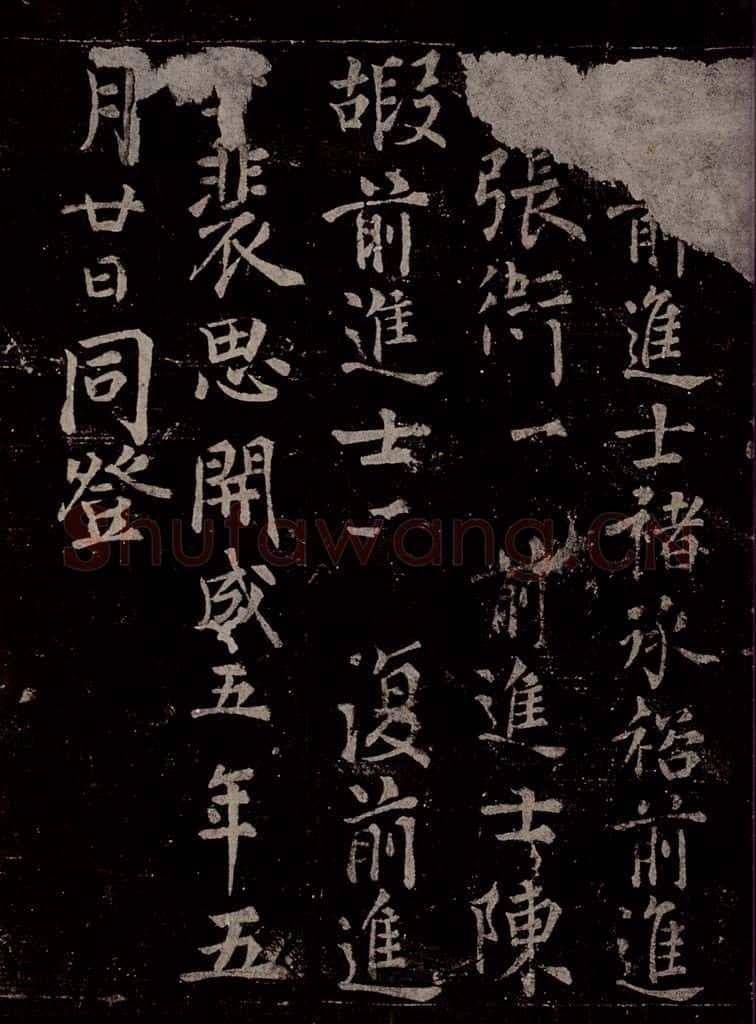 前進士褚承裕前進
張衜一 前進士陳
嘏前進士一 復前進
裴思開成五年五
月廿日同登
Shufawang.CN